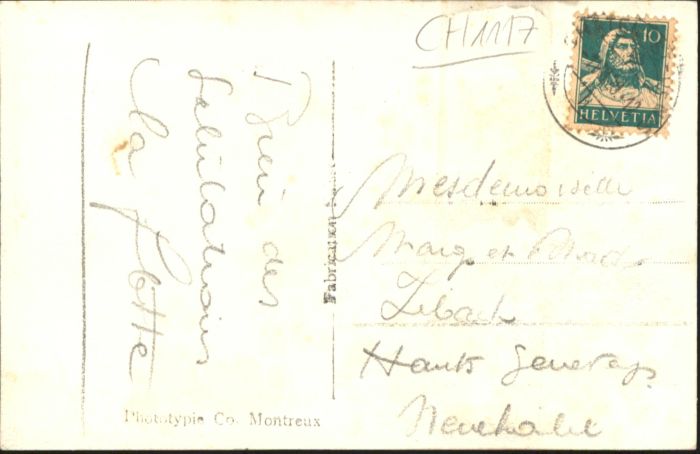 CH1117
10
HELVETIA
Bien des
Salutations
la flotte
Fabrication
Mesdemoiselle
Marg et
Zibach
Hauts Geneveys
Neuchatel
Phototypie Co. Montreux